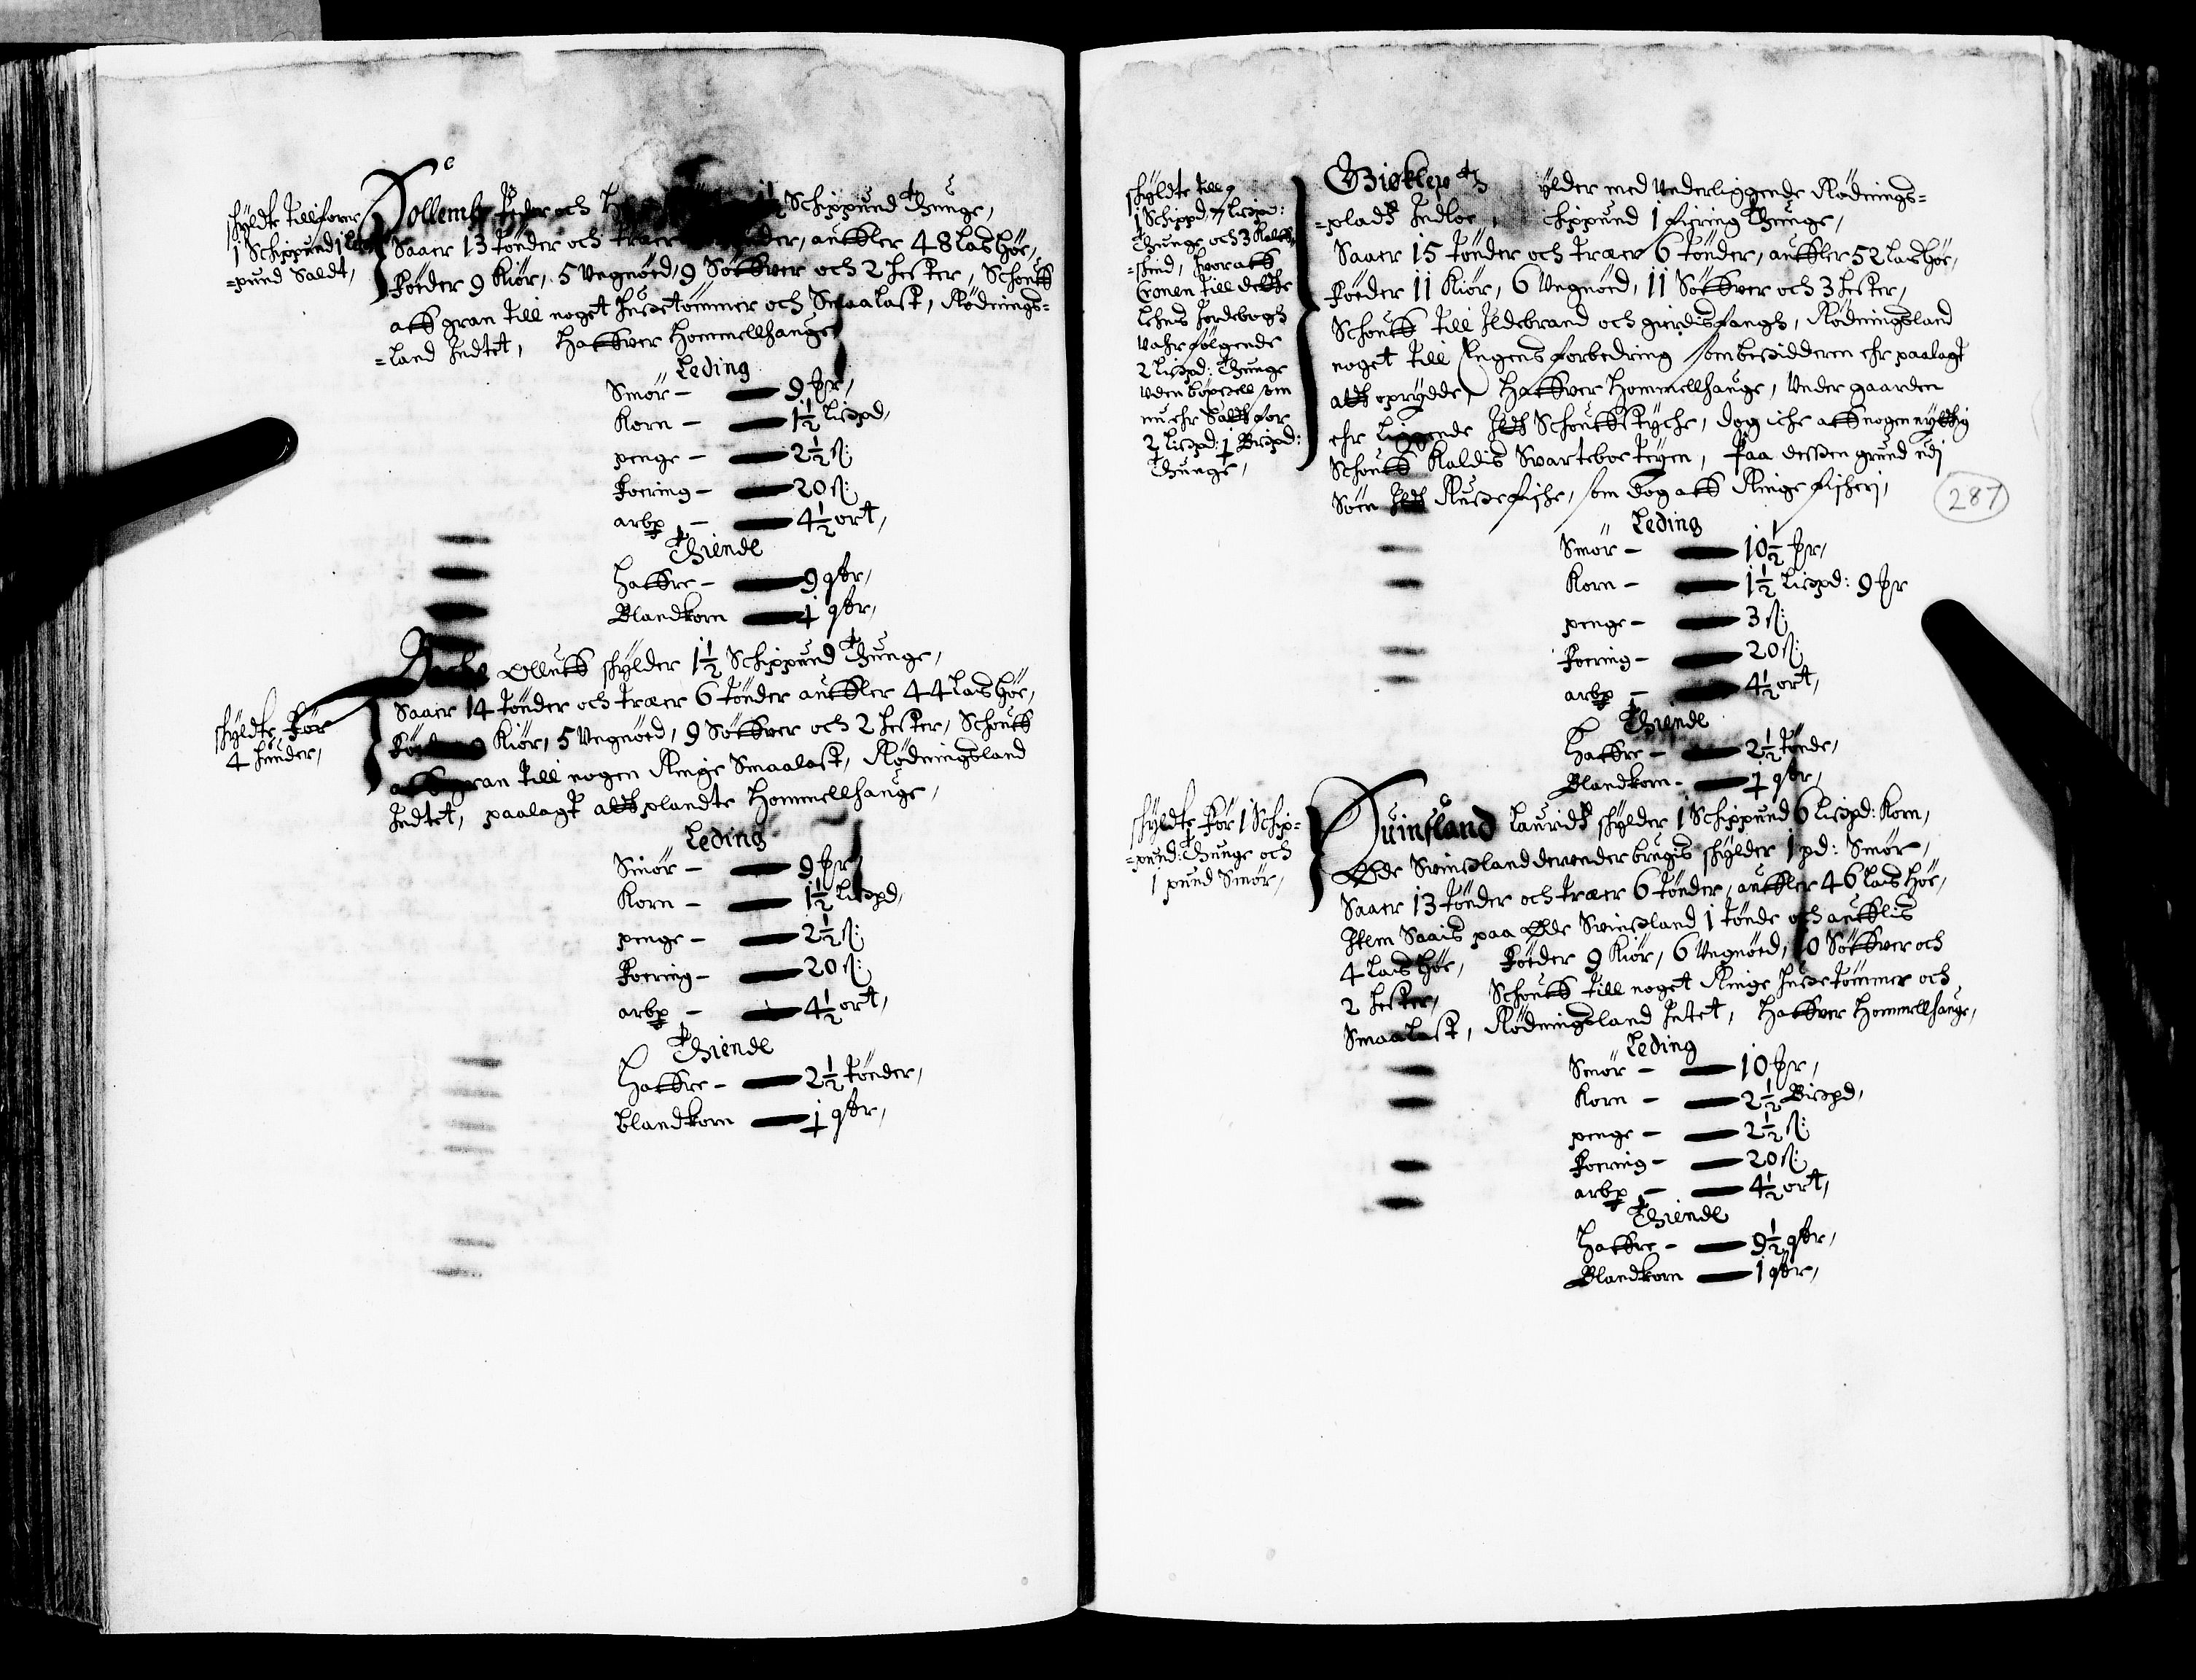 skyldte tillforne
1 Schippund 1 Lis
=pund Saldt,
Follemb Peder och H 1½ Schippund Thunge,
Saaer 13 tønder och træer der, aufler 48 Lais høe,
føeder 9 Kiør, 5 Ungnøed, 9 Søffuer och 2 hester, Schouff
aff gran till noget husetømmer och Smaalast, Rødnings=
=land Indtet, Haffuer Hommellhauge
Leding
Smør — 9 pr,
Korn — 1½ Lispd,
penge — 2½ s:
foering — 20 s:
arbp — 4½ ort,
Thiende
Haffre — 9 qtr,
Blandkorn 1 qtr,
skyldte før
4 huder,
Olluff skylder 1½ Schippund Thunge,
Saaer 14 tønder och træer 6 tønder aufler 44 Lais høe,
føeder 9 Kiør, 5 Ungnøed, 9 Søffuer och 2 hester, Schouff
aff gran till nogen Ringe Smaalast, Rødningsland
Indtet, paalagt att plandte Hommellhauge,
Leding
Smør — 9 pr,
Korn — 1½ Lispd,
penge — 2½ s:
foering — 20 s:
arbp — 4½ ort,
Thiende
Haffre — 2½ tønder,
blandkorn 1 qtr,
skyldte till
1 Schippd, 7 Lispd:
Thunge och 3 Kalff
=skind, huoraff
Cronen till dette
Lehns Jordebogh
vahr følgende
2 Lispd: Thunge
uden bøxsell som
nu ehr Satt for
2 Lispd: 1 Bispd:
Thunge,
Gieklep ylder med underliggende Rødnings=
=pladtz Indloe, chippund 1 fiering Thunge,
Saaer 15 tønder och træer 6 tønder, aufler 52 Lais høe,
føeder 11 Kiør, 6 Ungnøed, 11 Søffuer och 3 hester,
Schouff till Ildebrand och gierdisfangh, Rødningsland
noget till Engens forbedring som besidderen ehr paalagt
att oprydde, Haffuer Hommellhauge, Under gaarden
ehr liggende Itt Schouffstyche, dog iche aff nogen nyttig
Schouff Kaldis Suartebor teyen, Paa dessen grund udj
Søen Itt Rusefische, som dog aff Ringe fischerj,
287
Leding
Smør — 10½ pr,
Korn — 1½ Lispd: 9 pr
penge — 3 s:
foering — 20 s:
arbp — 4½ ort,
Thiende
Haffre — 2½ tønde,
Blandkorn — 1 qtr,
skyldte før 1 Schip=
=pund: Thunge och
1 pund Smør,
Quinsland Lauridtz skylder 1 Schippund 6 Lispd: Korn,
Øde Suinsland derunder brugis skylder 1 pd: Smør,
Saaer 13 tønder och træer 6 tønder, aufler 46 Lais høe,
Item Saais paa Øde Suinsland 1 tønde och auflis
4 Lais høe, føeder 9 Kiør, 6 Ungnøed, 10 Søffuer och
2 hester, Schouff till noget Ringe husetømmer och
Smaalast, Rødningsland Intet, Haffuer Hommellhauge,
Leding
Smør — 10 pr,
Korn — 2½ Bispd,
penge — 2½ s:
foering — 20 s:
arbp — 4½ ort,
Thiende
Haffre — 9½ qtr,
Blandkorn 1 qtr,